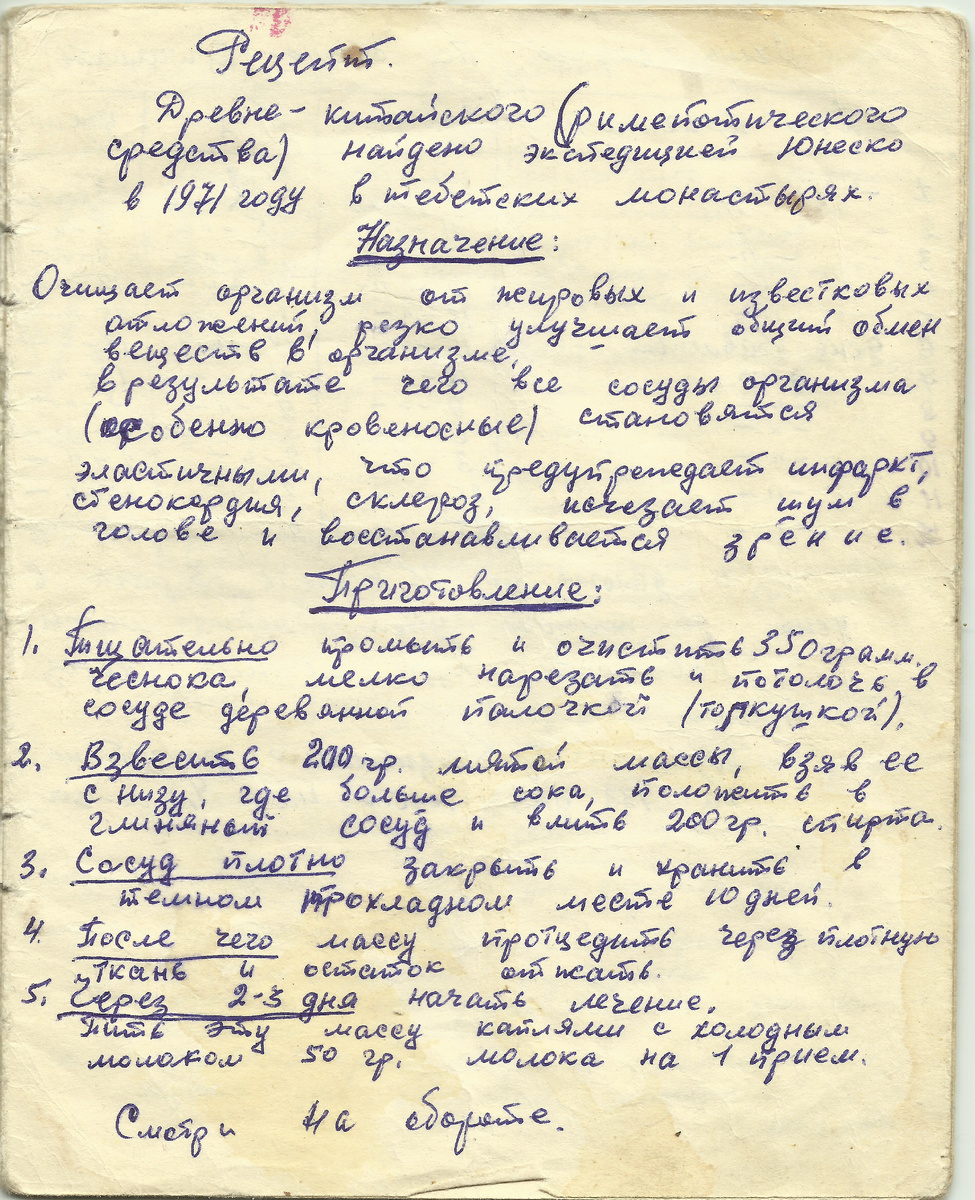 Рецепт.
Древне-китайского (римепотического
средства) найдено экспедицией Юнеско
в 1971 году в тебетских монастырях.
Назначение:
Очищает организм от жировых и известковых
отложений, резко улучшает общий обмен
веществ в организме,
в результате чего все сосуды организма
(особенно кровеносные) становятся
эластичными, что предупреждает инфаркт,
стенокордия, склероз, исчезает шум в
голове и восстанавливается зрение.
Приготовление:
1. Тщательно промыть и очистить 350 грамм.
чеснока, мелко нарезать и потолочь в
сосуде деревянной палочкой (толкушкой),
2. Взвесить 200 гр. мятой массы, взяв ее
с низу, где больше сока, положить в
глиняный сосуд и влить 200 гр. спирта.
3. Сосуд плотно закрыть и хранить в
темном прохладном месте 10 дней.
4. После чего массу протцедить через плотную
ткань и остаток отжать.
5. Через 2-3 дня начать лечение.
Пить эту массу каплями с холодным
молоком 50 гр. молока на 1 прием.
Смотри на обороте.